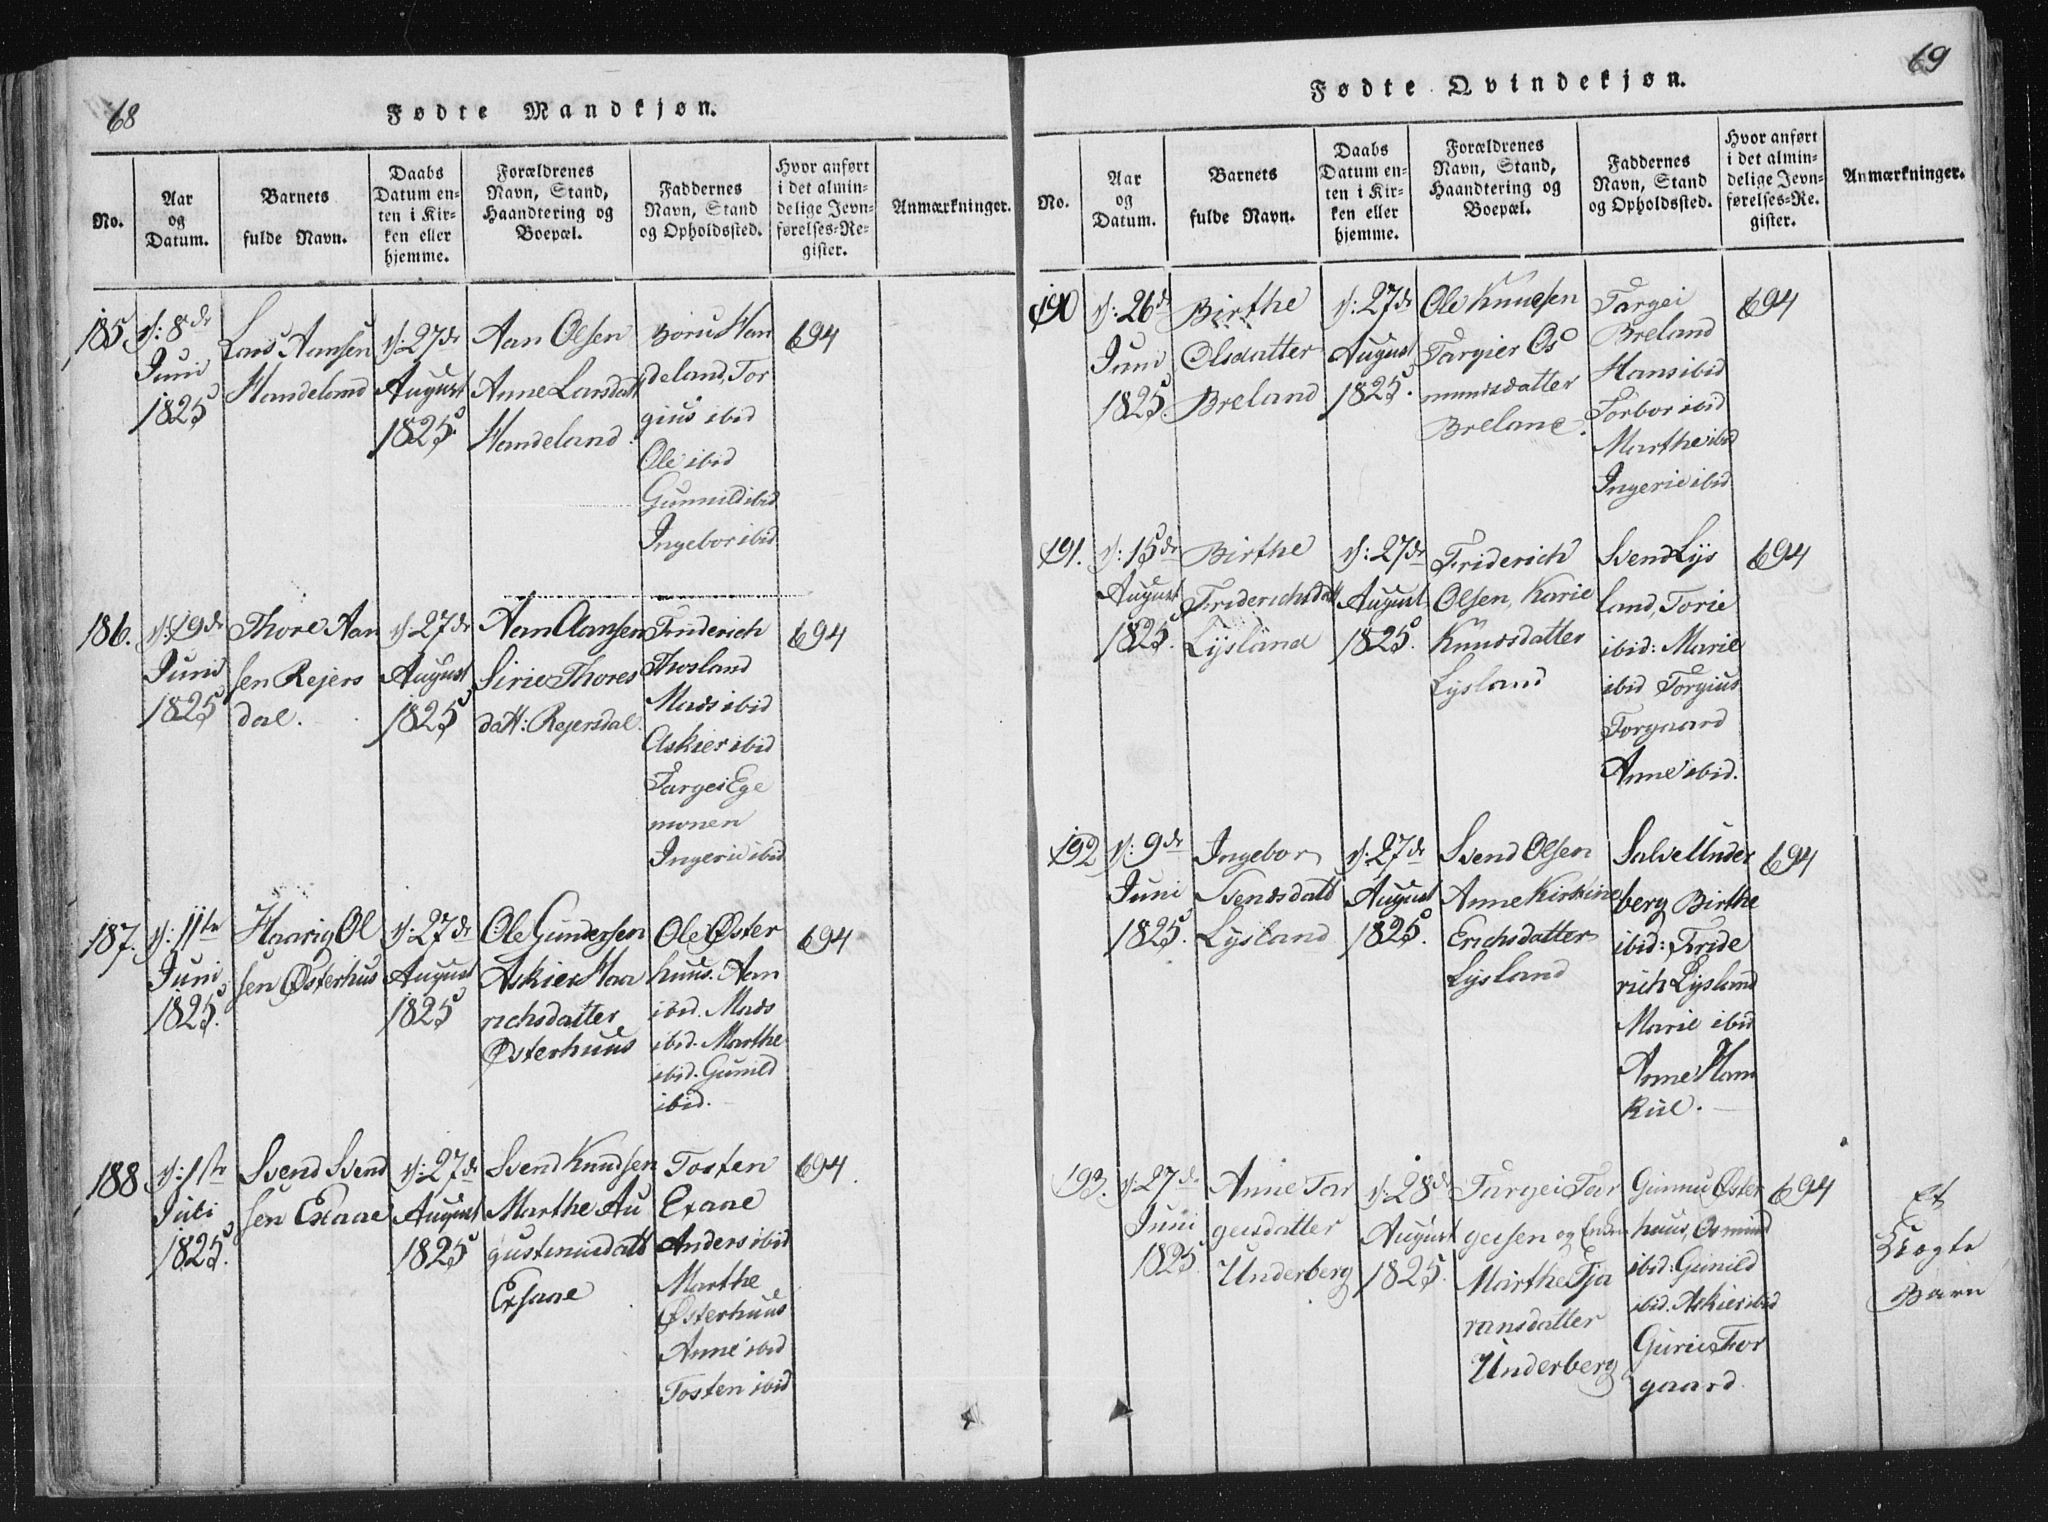 68
Fødte Mandkjøn.
No.
Aar
og
Datum.
Barnets
fulde Navn.
Daabs
Datum en-
ten i Kir-
ken eller
hjemme.
Forældrenes
Navn, Stand,
Haandtering og
Boepæl.
Faddernes
Navn, Stand
og Opholdssted.
Hvor anført
i det almin-
delige Jevn-
førelses-Re-
gister.
Anmærkninger.
185
d: 8de
Juni
1825
Lars Aansen
Handeland
d: 27de
August
1825.
Aan Olsen
Anne Larsdatt
Handeland.
Boru Han
deland, Tor
gius ibid
Ole ibid
Gunnild ibid
Ingebor ibid
694
186.
d: 19de
Juni
1825
Thore Aan
sen Rejers
dal.
d: 27de
August
1825
Aan Aansen
Sirie Thores
datt: Rejersdal.
Friderich
Thosland
Mads ibid
Askier ibid
Targei Ege
monen
Ingerie ibid
694
187.
d: 11te
Juni
1825.
Haarig Ol
sen Østerhus
d: 27de
August
1825
Ole Gundersen
Askier Haa
richsdatter
Østerhuus
Ole Øster
huus. Aan
ibid. Mads
ibid. Marthe
ibid. Gunild
ibid.
694
188
d: 1ste
Juli
1825.
Svend Svend
sen Exaae
d: 27de
August
1825
Svend Knudsen
Marthe Au
gustiniusdatt
Exaae
Tosten
Exaae
Anders ibid
Marthe
Østerhuus
Anne ibid
Tosten ibid
694
69
Fødte Qvindekjøn.
No.
Aar
og
Datum.
Barnets
fulde Navn.
Daabs
Datum en-
ten i Kir-
ken eller
hjemme.
Forældrenes
Navn, Stand,
Haandtering og
Boepæl.
Faddernes
Navn, Stand
og Opholdssted.
Hvor anført
i det almin-
delige Jevn-
førelses-Re-
gister.
Anmærkninger.
190
d: 26de
Juni
1825.
Birthe
Olsdatter
Breland
d: 27de
August
1825.
Ole Knudsen
Targier Os
mundsdatter
Breland.
Targei
Breland
Hans ibid
Torbor ibid
Marthe ibid
Ingerie ibid
694
191.
d: 15de
August
1825.
Birthe
Friderichsdatt
Lysland
d: 27de
August
1825.
Friderich
Olsen, Karie
Knudsdatter
Lysland
Svend Lys
land, Torie
ibid: Marie
ibid Torgius
Torgaard
Anne ibid.
694
192
d: 9de
Juni
1825.
Ingebor
Svendsdatt
Lysland
d: 27de
August
1825.
Svend Olsen
Anne Kirstine
Erichsdatter
Lysland
Salve Under
berg Birthe
ibid: Fride
rich Lysland
Marie ibid
Anne Ham
kul.
694
193.
d: 27de
Juni
1825.
Anne Tar
geisdatter
Underberg
d: 28de
August
1825.
Targei Tar
geisen og
Marthe Tja
ransdatter
Underberg
Gunnu Øster
huus, Osmund
ibid: Gunild
ibid. Askier ibid
Gurie Thor
gaard.
694
Et
Barn